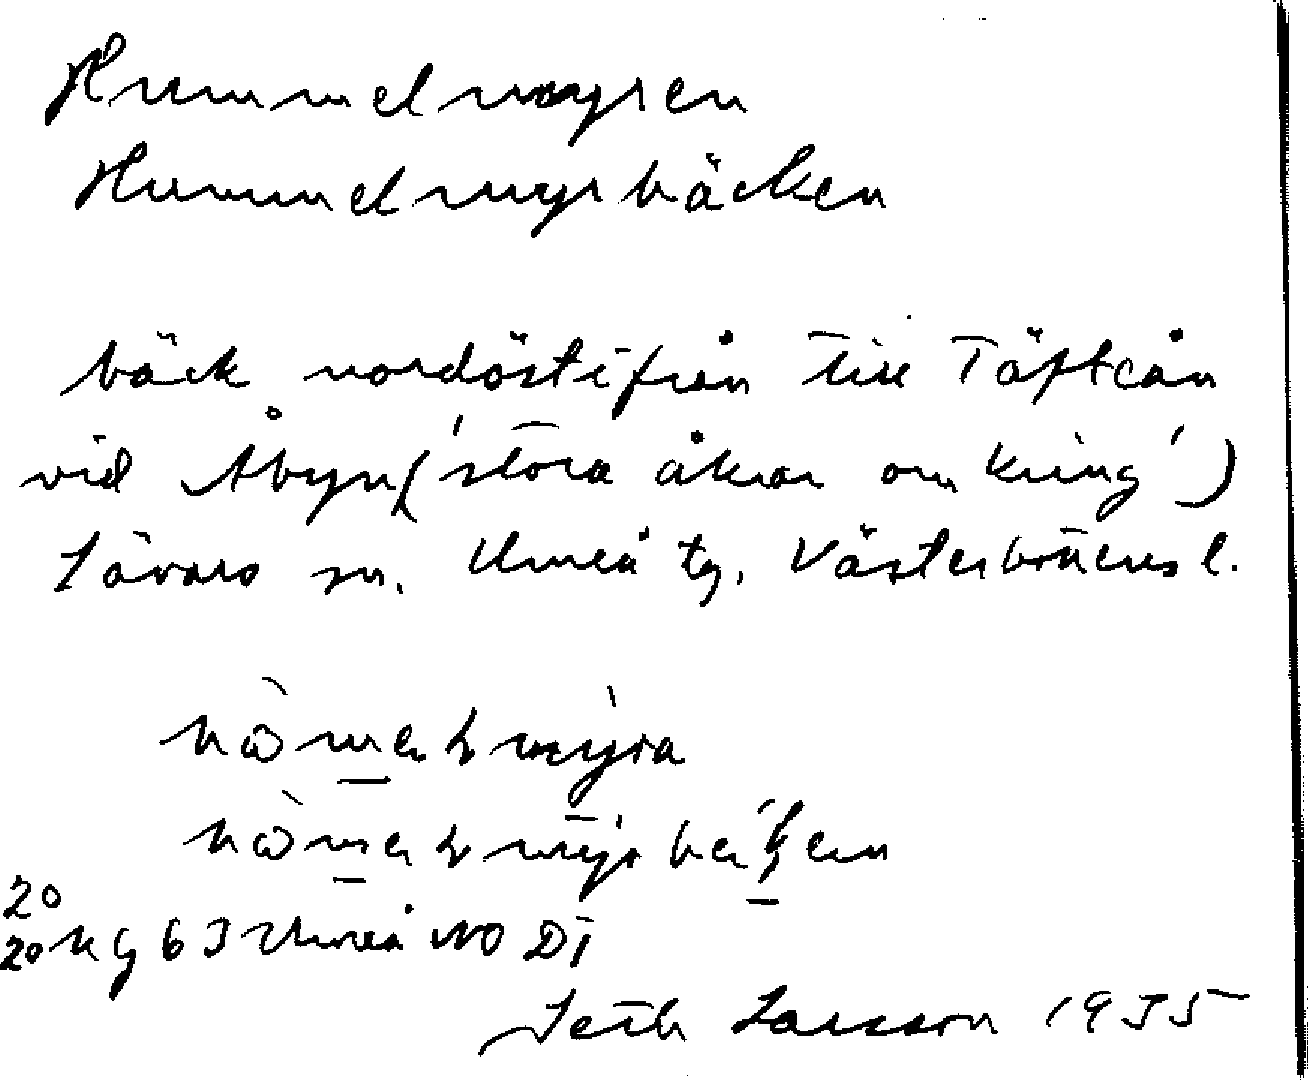 Hummelmyren
Hummelmyrbäcken
bäck nordöstifrån till Täfteån
vid Åbyn ('stora åkrar omkring')
Sävars sn. Umeå tg. Västerbottens l.
20
20 Kg 63 Umeå NO DI
Seth Larsson 1955